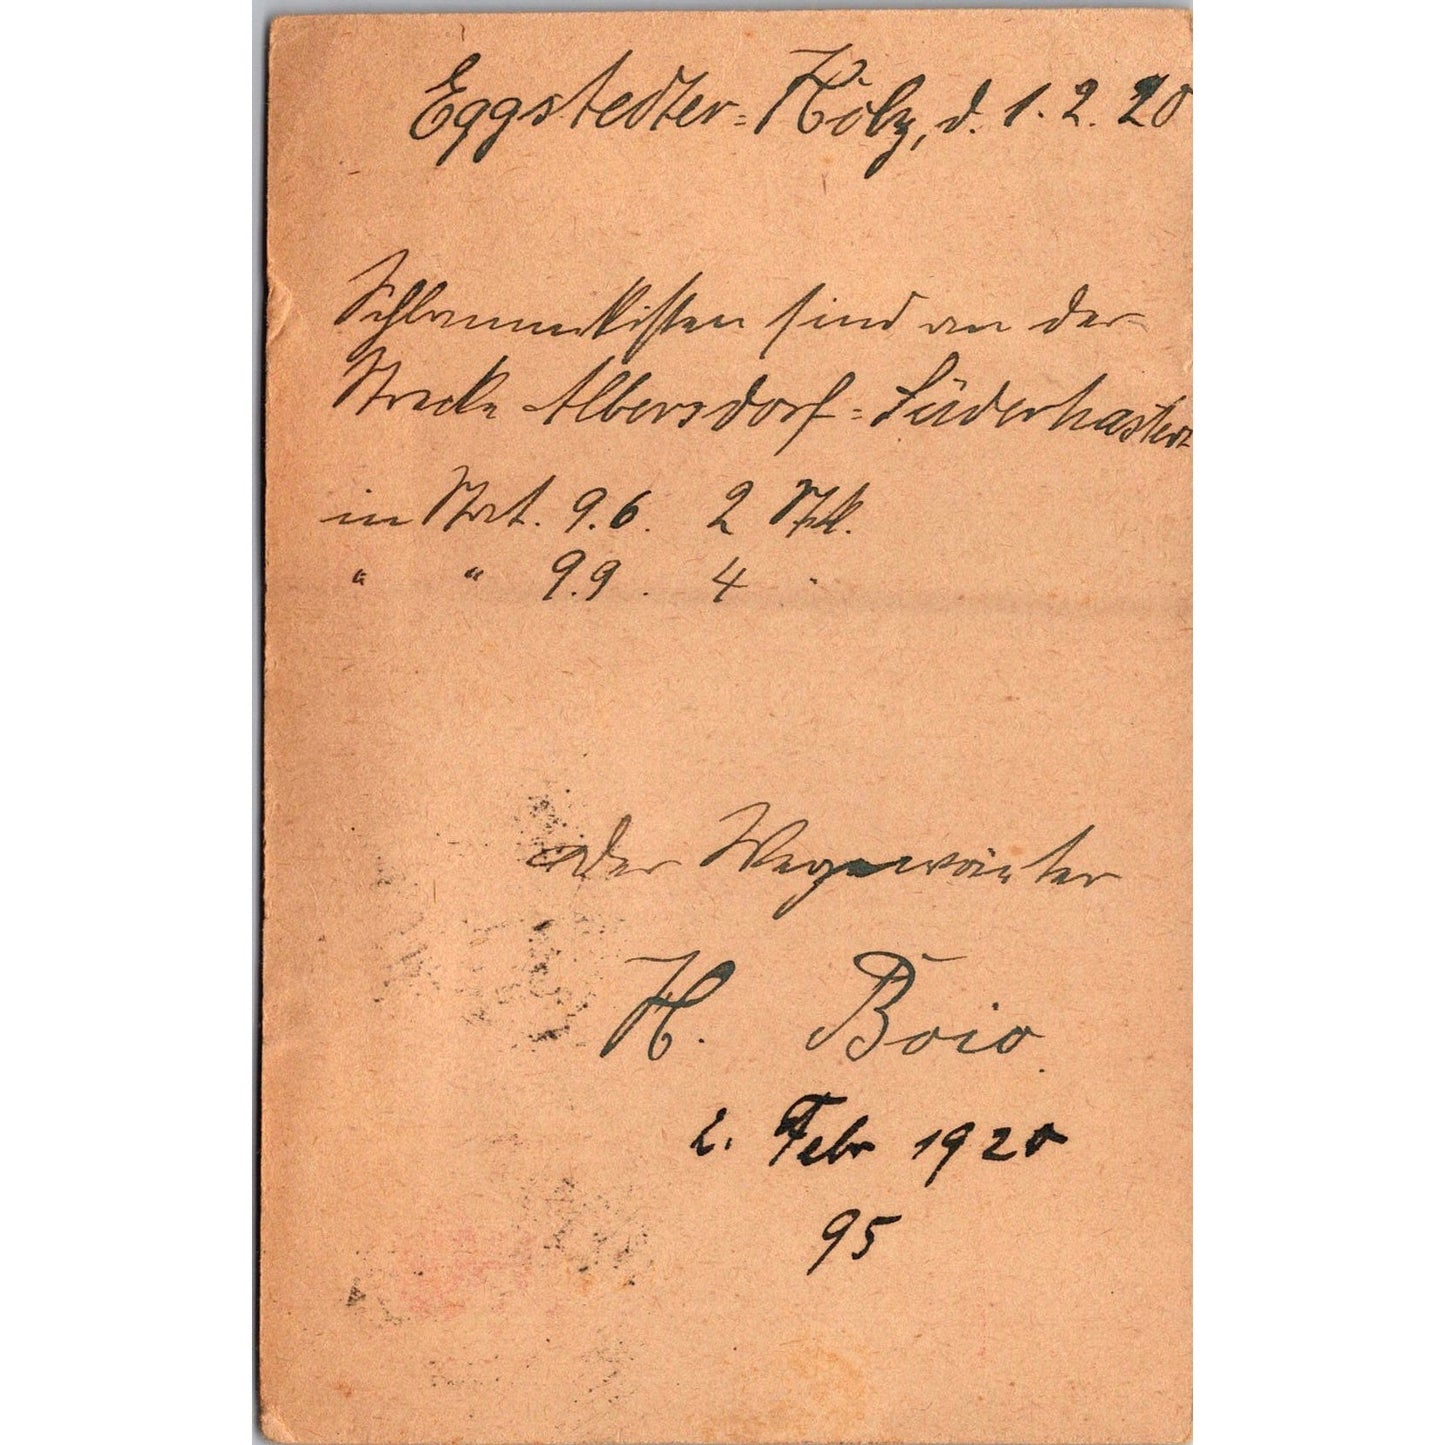 Eggstedter-Hölz, d. 1. 2. 20
Schlammkisten sind an der
Strecke Albersdorf-Süderhastedt
in Stat. 9.6. 2 Stk.
" " 9.9. 4 "
Der Wegewärter
H. Boio.
2. Febr 1920
95